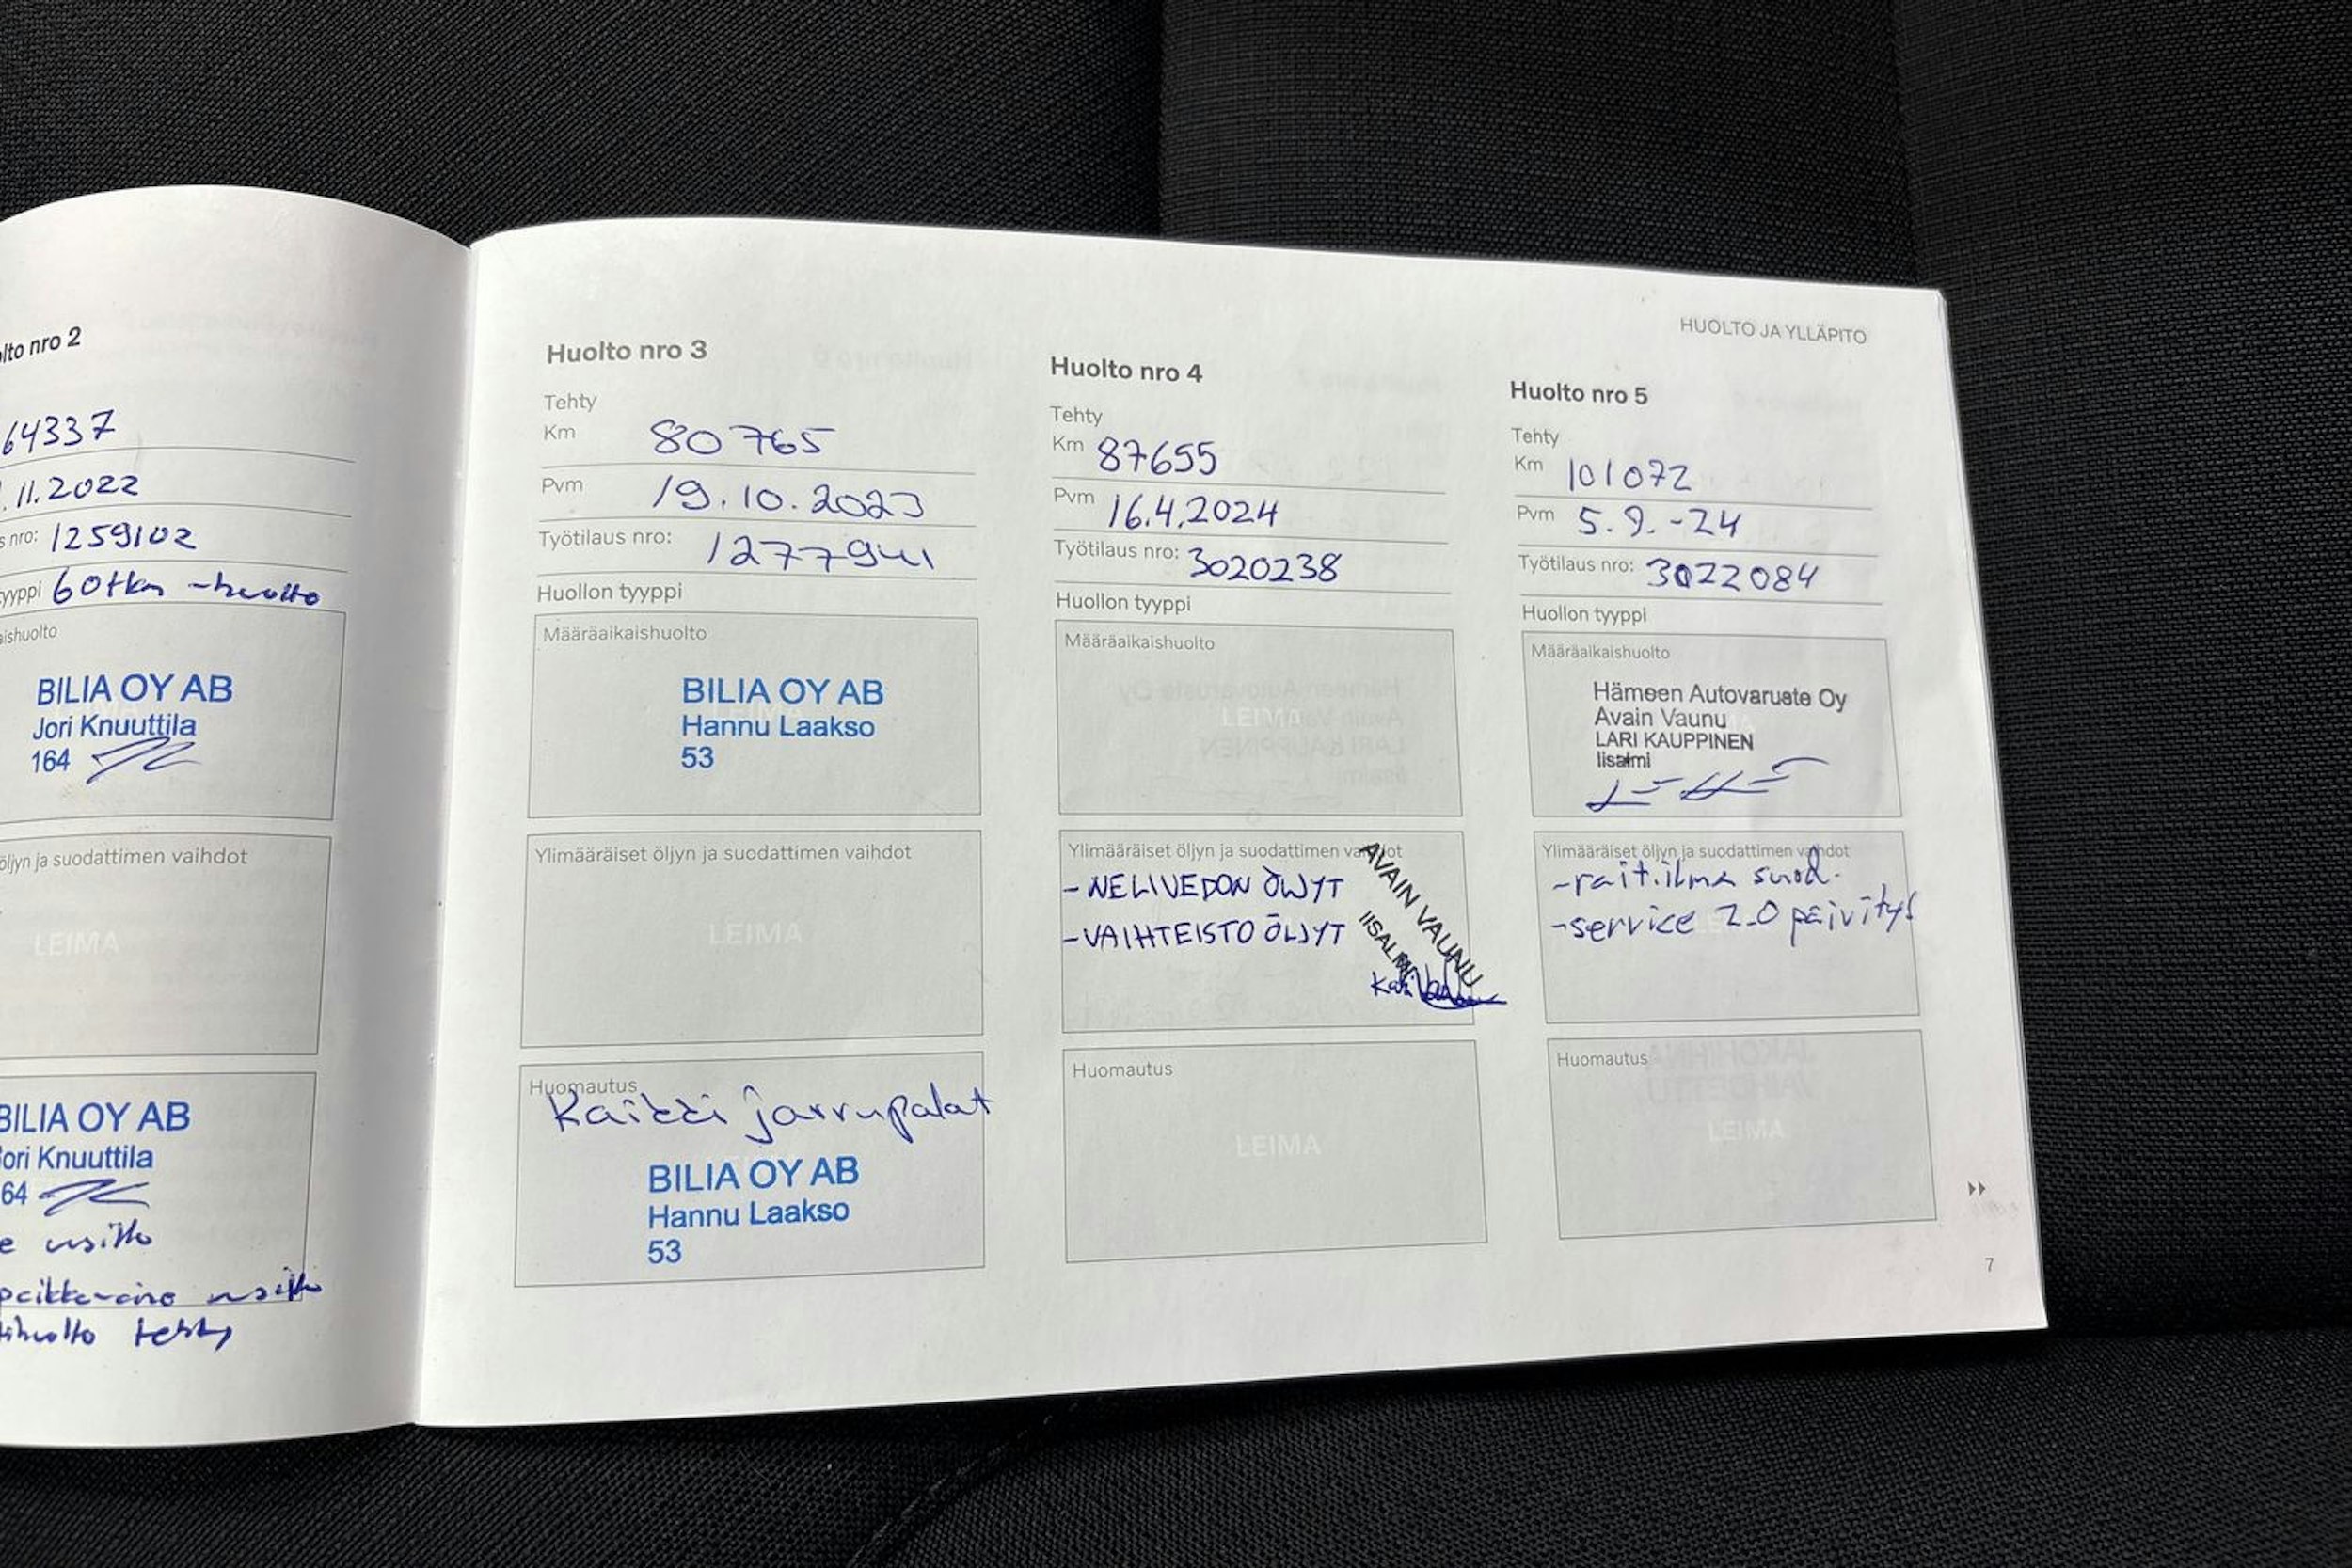 lto nro 2
64337
.11.2022
s nro: 1259102
tyyppi 60tkm -huolto
aishuolto
BILIA OY AB
Jori Knuuttila
164
öljyn ja suodattimen vaihdot
LEIMA
BILIA OY AB
ori Knuuttila
64
e
tehty
HUOLTO JA YLLÄPITO
Huolto nro 3
Tehty
Km 80 765
Pvm 19.10.2023
Työtilaus nro: 1277941
Huollon tyyppi
Määräaikaishuolto
BILIA OY AB
Hannu Laakso
53
Ylimääräiset öljyn ja suodattimen vaihdot
LEIMA
Huomautus
Kaikki jarrupalat
BILIA OY AB
Hannu Laakso
53
Huolto nro 4
Tehty
Km 87655
Pvm 16.4.2024
Työtilaus nro: 3020238
Huollon tyyppi
Määräaikaishuolto
LEIMA
Ylimääräiset öljyn ja suodattimen vaihdot
- NELIVEDON ÖLJYT
- VAIHTEISTO ÖLJYT
AVAIN VAUNU
IISALMI
Huomautus
LEIMA
Huolto nro 5
Tehty
Km 101072
Pvm 5.9.-24
Työtilaus nro: 3022084
Huollon tyyppi
Määräaikaishuolto
Hämeen Autovaruste Oy
Avain Vaunu
LARI KAUPPINEN
Iisalmi
Ylimääräiset öljyn ja suodattimen vaihdot
-rait.ilma suod.
-service 2.0 päivitys
Huomautus
LEIMA
7